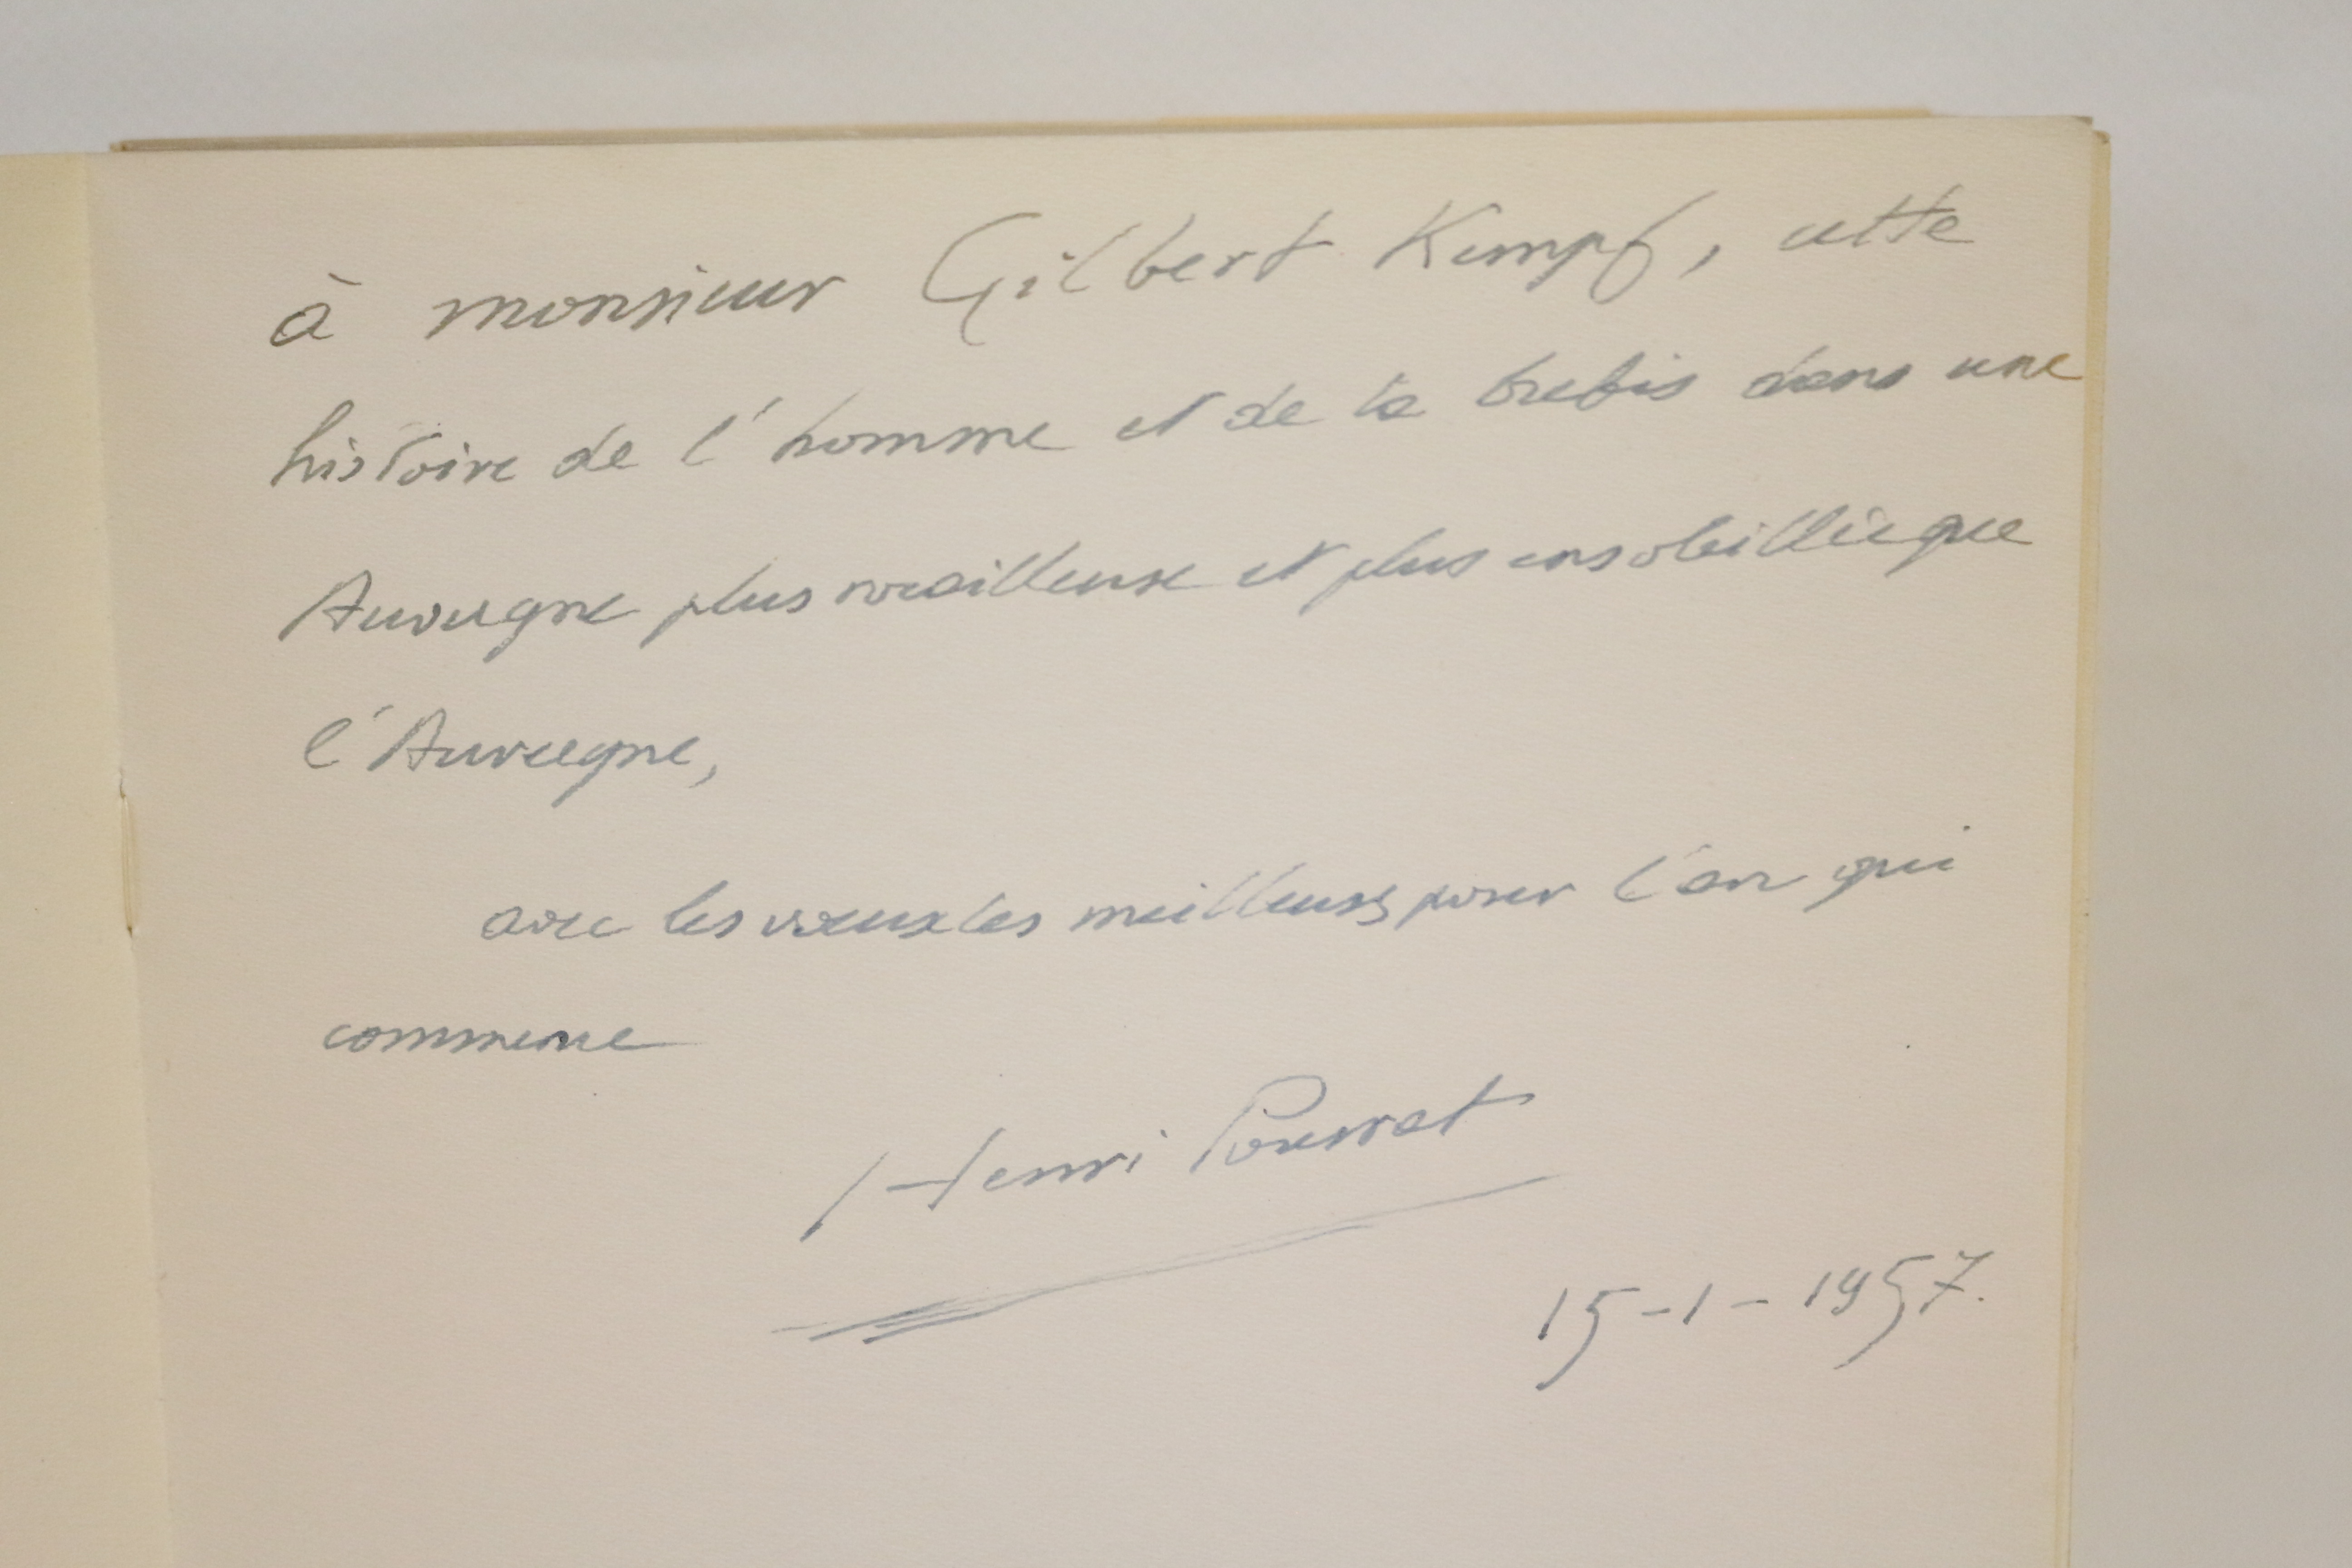 à monsieur Gilbert Kempf, cette
histoire de l'homme et de la brebis dans une
Auvergne plus rocailleuse et plus ensoleillée que
l'Auvergne,
avec les vœux les meilleurs pour l'an qui
commence
Henri Pourrat
15-1-1957.